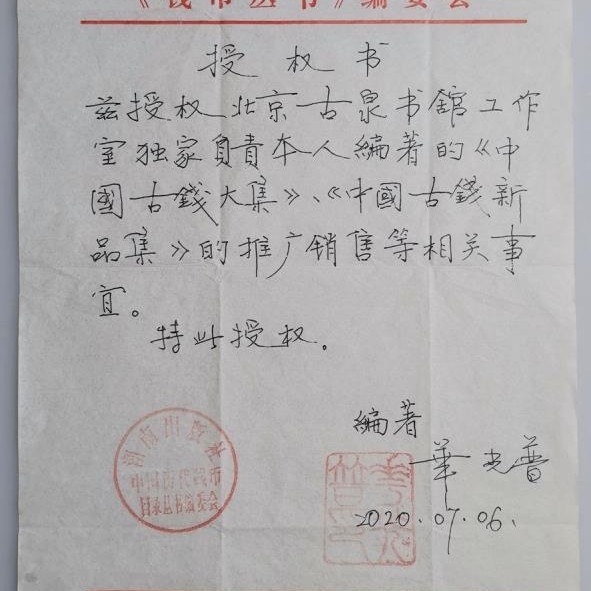 《钱币丛书》编委会
授权书
兹授权北京古泉书館工作
室独家負責本人編著的《中
國古錢大集》、《中國古錢新
品集》的推广销售等相关事
宜。
特此授权。
編著
華光普
2020.07.06.
湖南出版社
中国历代钱币
目录丛书编委会